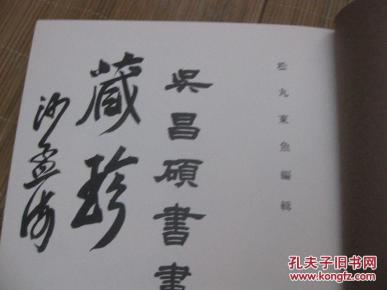 松丸東魚編輯
吳昌碩書畫
藏珍
沙孟海
孔夫子旧书网